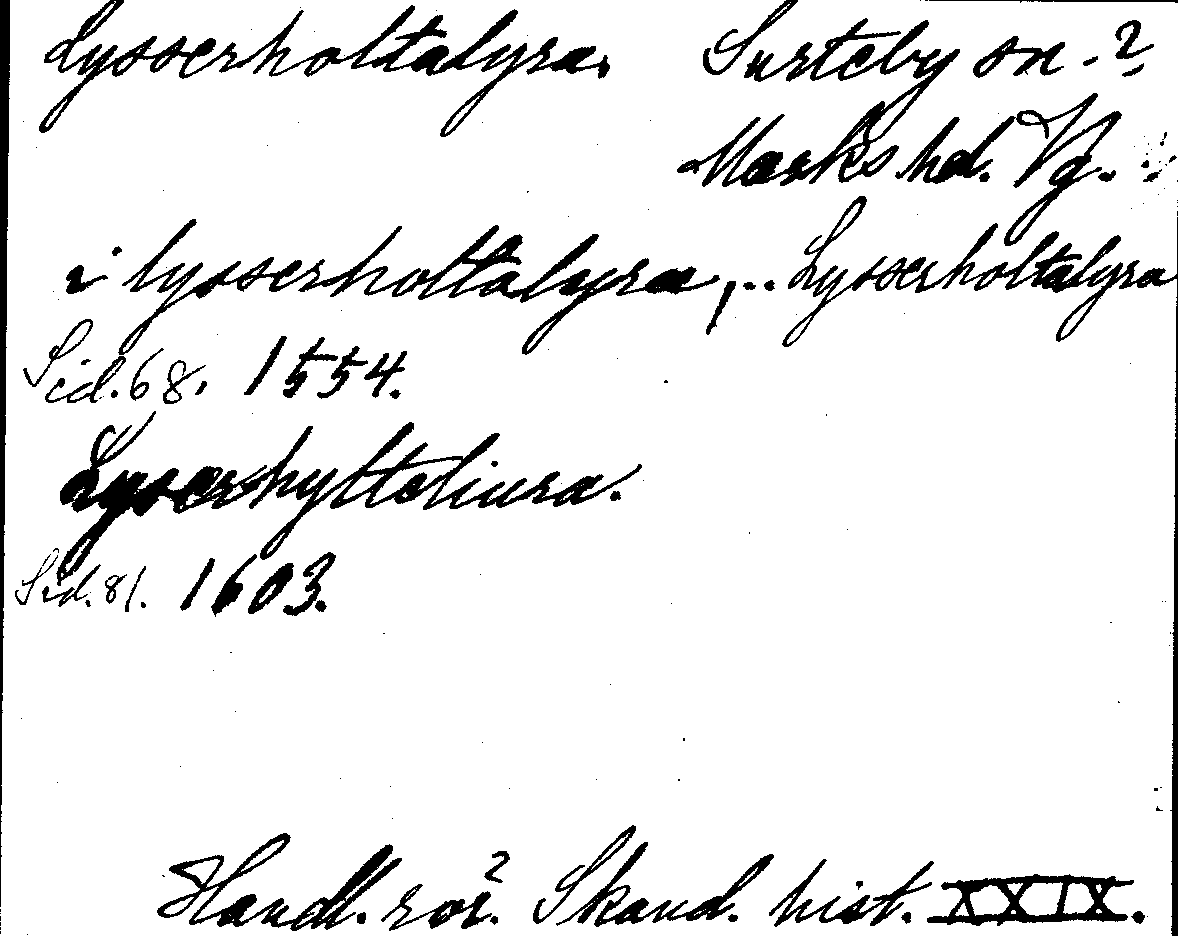 Lysserholtalyra. Surteby sn. ?
Marks hd. Vg.
i lysserholtalyra, .. Lysserholtalyra
Sid. 68. 1554.
Lyserhytteliura.
Sid. 81. 1603.
Handl. rör. Skand. hist. XXIX.